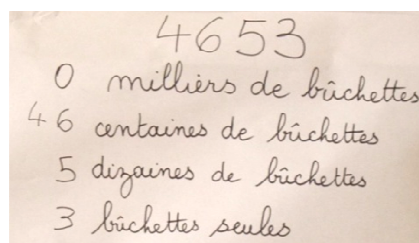 4653
0 milliers de bûchettes
46 centaines de bûchettes
5 dizaines de bûchettes
3 bûchettes seules